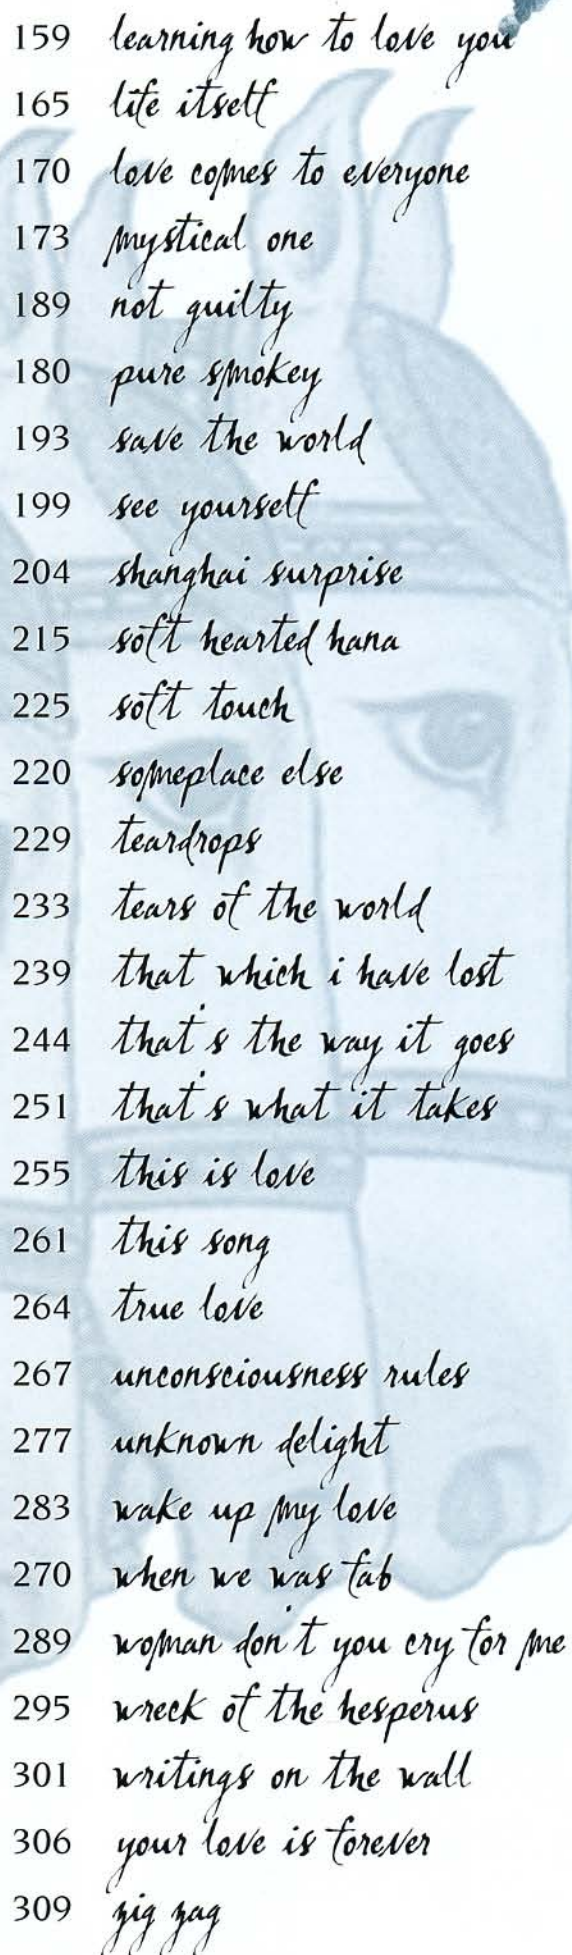 159 learning how to love you
165 life itself
170 love comes to everyone
173 mystical one
189 not guilty
180 pure smokey
193 save the world
199 see yourself
204 shanghai surprise
215 soft hearted hana
225 soft touch
220 someplace else
229 teardrops
233 tears of the world
239 that which i have lost
244 that's the way it goes
251 that's what it takes
255 this is love
261 this song
264 true love
267 unconsciousness rules
277 unknown delight
283 wake up my love
270 when we was fab
289 woman don't you cry for me
295 wreck of the hesperus
301 writings on the wall
306 your love is forever
309 zig zag